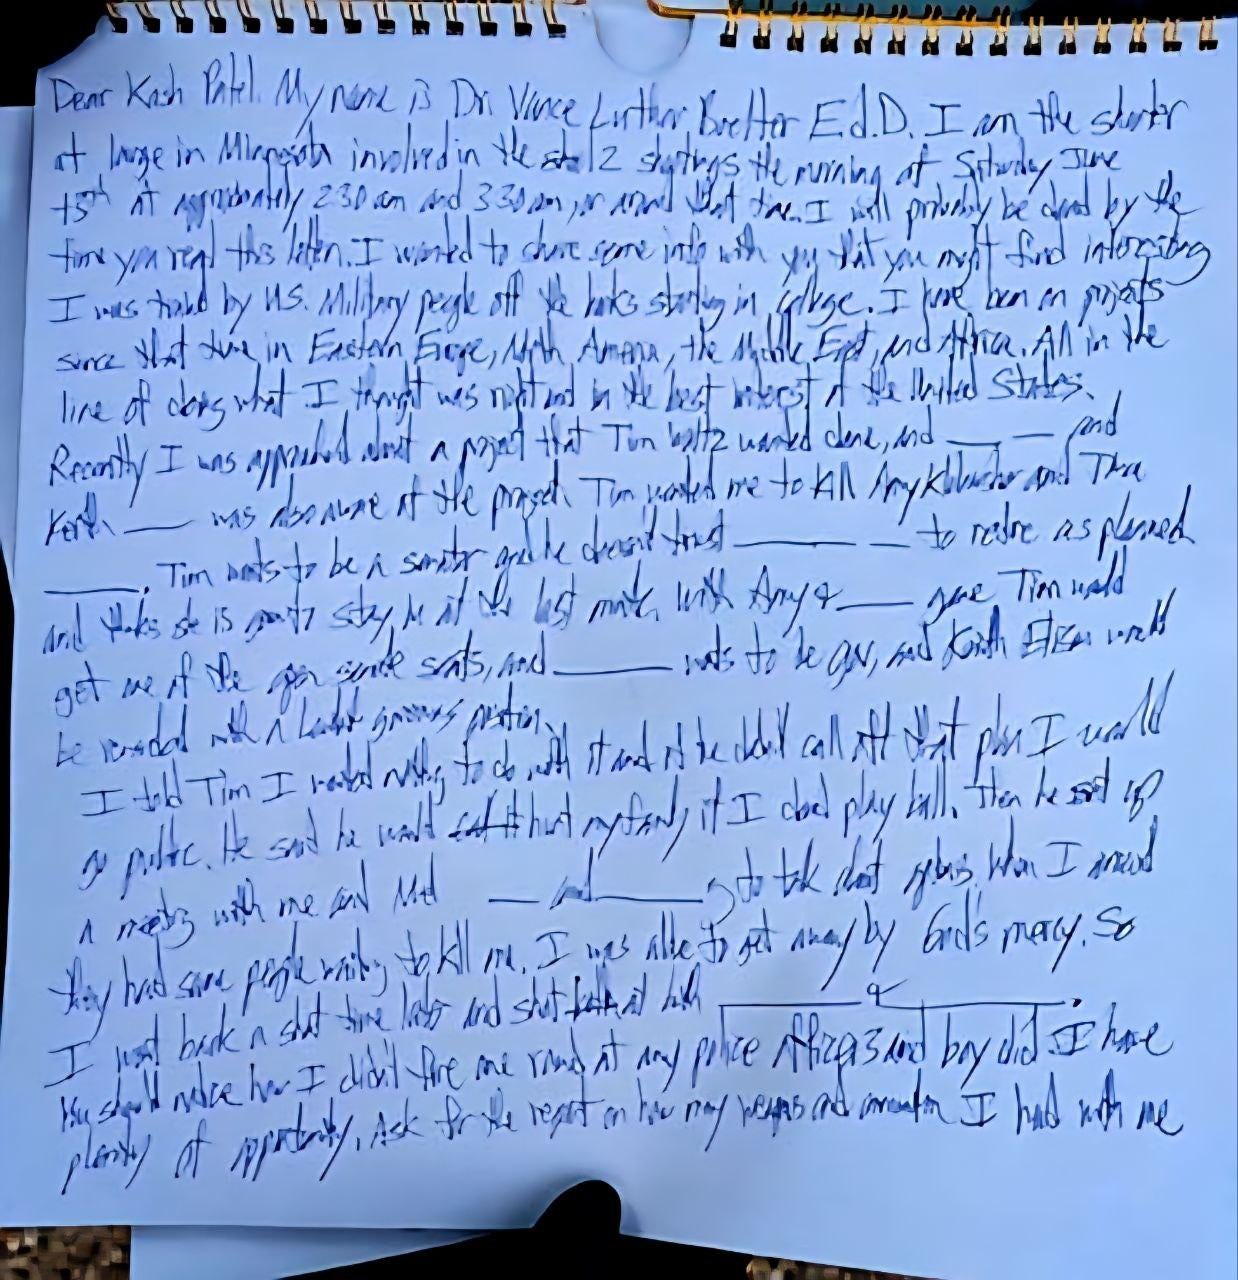 Dear Kash Patel. My name is Dr. Vance Luther Boelter Ed.D. I am the shooter
at large in Minnesota involved in the 2 shootings the morning of Saturday June
15th at approximately 2:30 am and 3:30 am, or around that time. I will probably be dead by the
time you read this letter. I wanted to share some info with you that you might find interesting
I was trained by U.S. Military people off the books starting in college. I have been on projects
since that time in Eastern Europe, North America, the Middle East, and Africa. All in the
line of doing what I thought was right and in the best interest of the United States.
Recently I was approached about a project that Tim Waltz wanted done, and ___ ___ and
Keith ___ was also aware of the project. Tim wanted me to kill Amy Klobuchar and Tina
_____. Tim wants to be a senator and he doesn't trust ______ ___ to retire as planned
and thinks she is going to stay in at the last minute. With Amy & ____ gone Tim would
get one of the open senate seats, and ______ wants to be gov, and Keith would
be rewarded with a position.
I told Tim I wanted nothing to do with it and if he didn't call off that plan I would
go public. He said he would hurt my family if I didn't play ball. Then he set up
a meeting with me and ___ and ______ to talk about options. When I arrived
they had some people waiting to kill me. I was able to get away by God's mercy. So
I went back a short time later and shot at both ______ & ______.
You should notice how I didn't fire one round at any police officers and boy did I have
plenty of opportunity. Ask for the report on how many weapons and ammunition I had with me